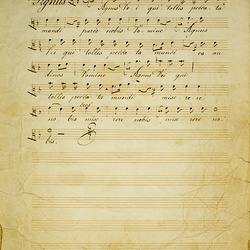 Agnus Agnus De i qui tollis pecca ta
mundi parce nobis Do mine Agnus
De i qui tollis pecca ta mundi ex au
di nos Domine Agnus De i qui
tollis pecca ta mundi mise re re
no bis mise rere nobis mise rere no
bis.